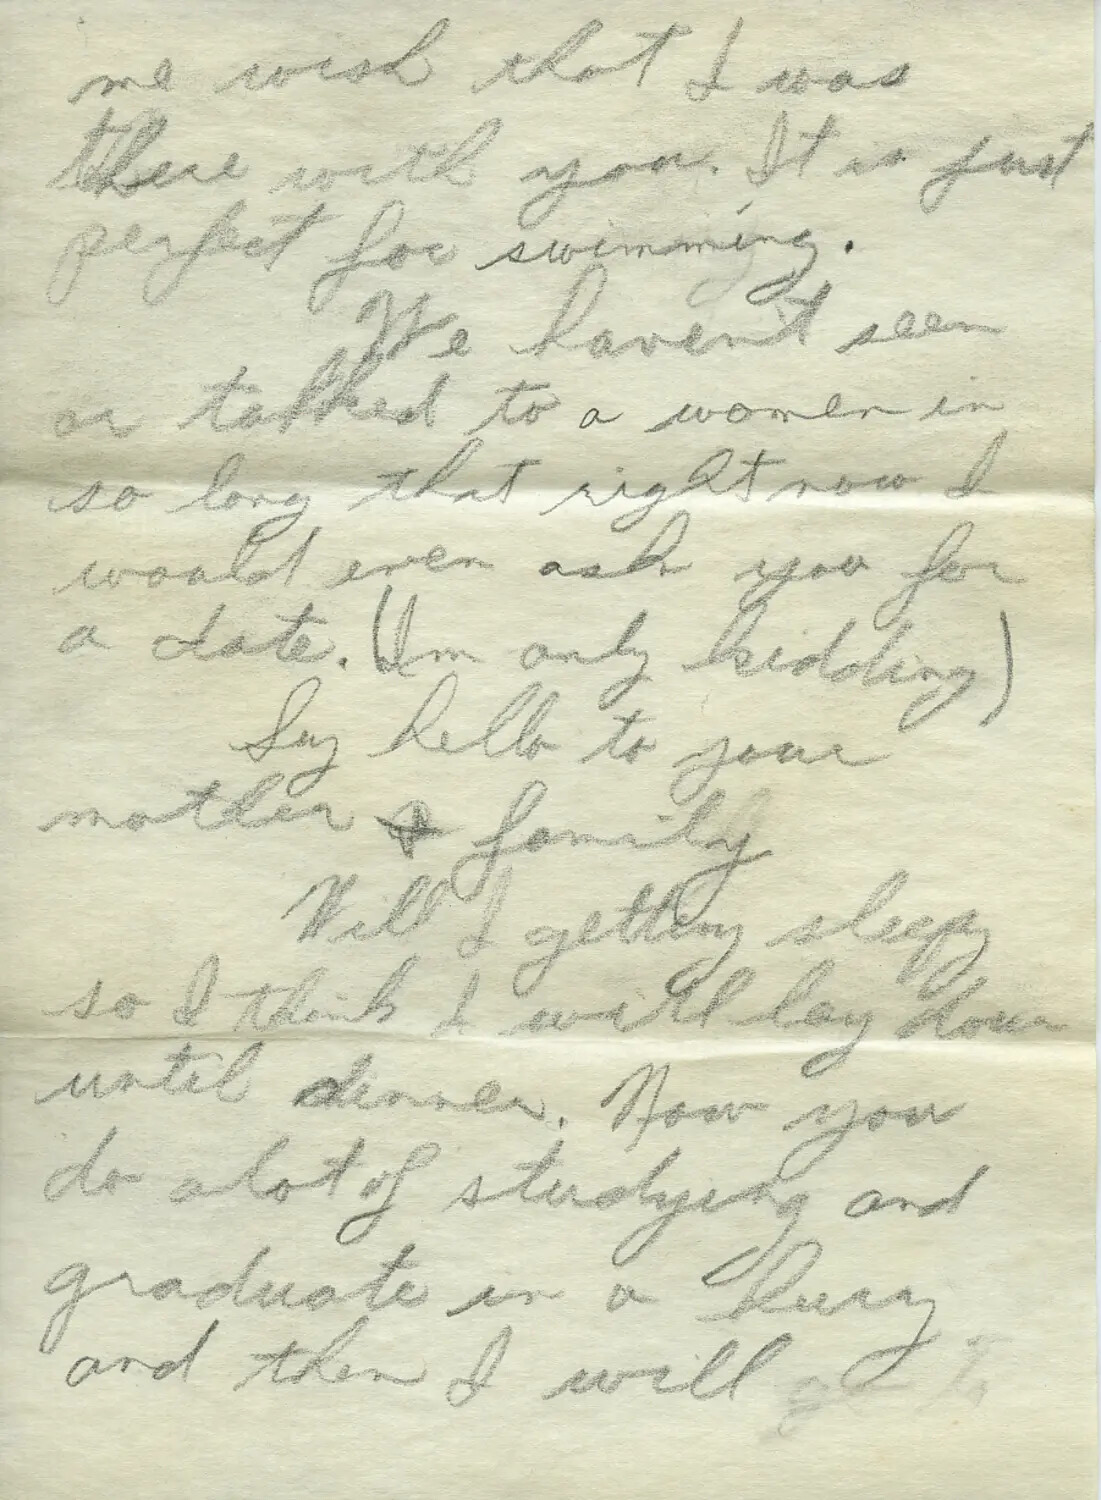 me wish that I was
there with you. It is just
perfect for swimming.
We haven't seen
or talked to a women in
so long that right now I
would even ask you for
a date. (Im only kidding)
Say hello to your
mother & family
Will I getting sleepy
so I think I will lay down
until dinner. Now you
do a lot of studying and
graduate in a hurry
and then I will